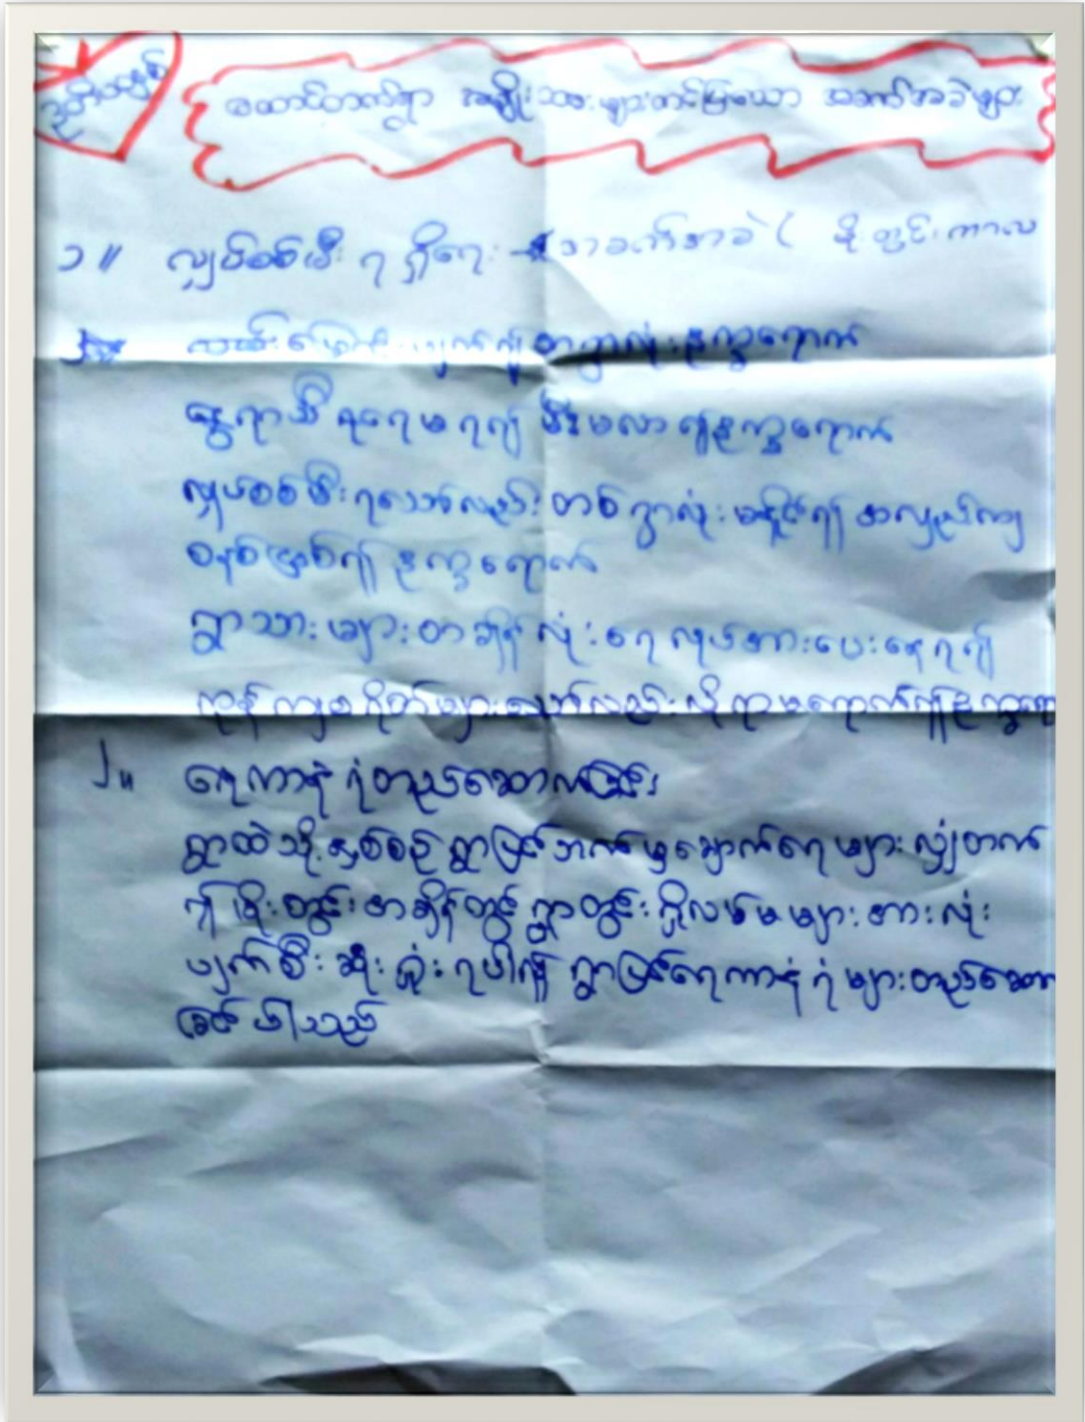 ထောင်တက်ရွာ အမျိုးသားများတင်ပြသော အခက်အခဲများ
၁။ လျှပ်စစ်မီး ရရှိရေး အခက်အခဲ ( မိုးတွင်းကာလ
လမ်း ပျက်၍ တရွာလုံး ဒုက္ခရောက်
နွေရာသီ ရေမရ၍ မီးမလာ၍ဒုက္ခရောက်
လျှပ်စစ်မီးရသော်လည်း တစ်ရွာလုံး မနိုင်၍ အလှည့်ကျ
စနစ်ဖြစ်၍ ဒုက္ခရောက်
ရွာသားများ တချိန်လုံး ရေ လုပ်အားပေးနေရ၍
ကုန်ကျစရိတ်များသော်လည်း လိုရာမရောက်၍ဒုက္ခရော
၂။ ရေကာနံရံတည်ဆောက်ခြင်း
ရွာထဲသို့ နှစ်စဉ် ရွာပြင်ဘက်မှ ချောက်ရေများ လျှံတက်
၍ မိုးတွင်းအချိန်တွင် ရွာတွင်းရှိလမ်းမများ အားလုံး
ပျက်စီး ဆုံးရှုံးရပါ၍ ရွာပြင်ရေကာနံရံများတည်ဆော
ခြင်ပါသည်